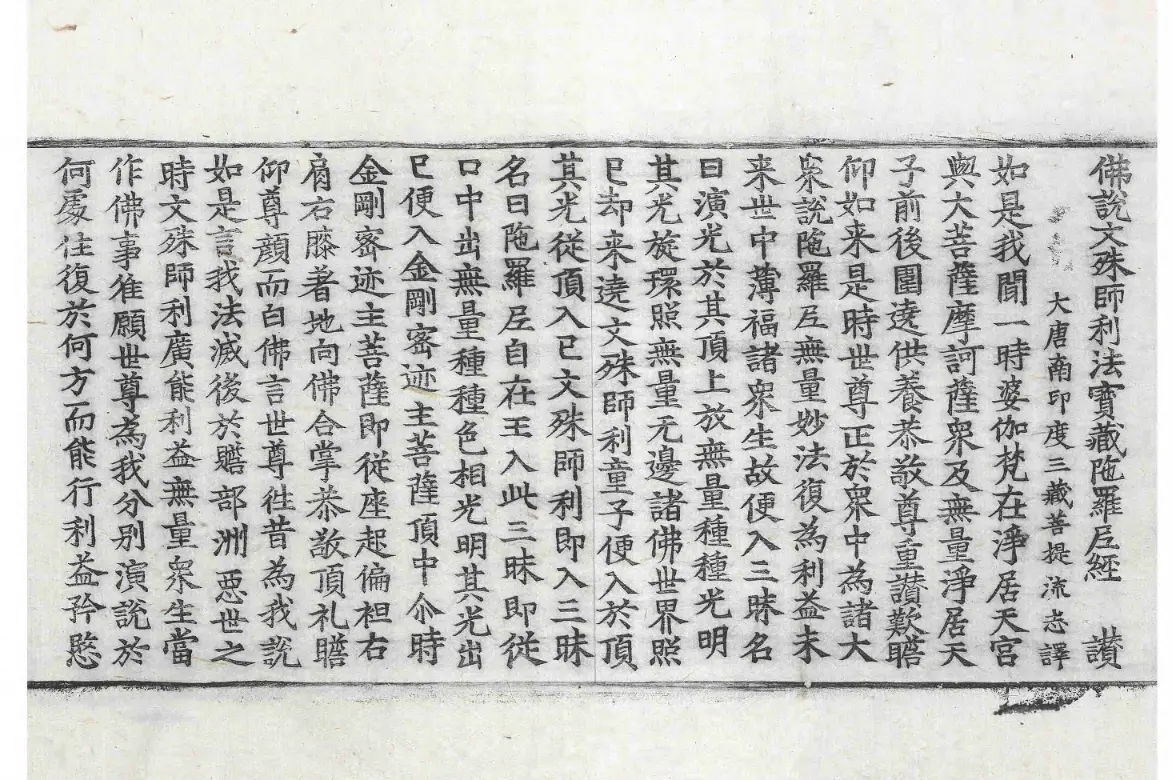 佛說文殊師利法寶藏陁羅尼經 讃
大唐南印度三藏菩提流志譯
如是我聞一時婆伽梵在淨居天宮
與大菩薩摩訶薩衆及無量淨居天
子前後圍遶供養恭敬尊重讃歎瞻
仰如来是時世尊正於衆中為諸大
衆說陁羅尼無量妙法復為利益未
来世中薄福諸衆生故便入三昧名
曰演光於其頂上放無量種種光明
其光旋環照無量无邊諸佛世界照
已却来遶文殊師利童子便入於頂
其光從頂入已文殊師利即入三昧
名曰陁羅尼自在王入此三昧即從
口中出無量種種色相光明其光出
已便入金剛密迹主菩薩頂中尒時
金剛密迹主菩薩即從座起偏袒右
肩右膝著地向佛合掌恭敬頂礼瞻
仰尊顔而白佛言世尊徃昔為我說
如是言我法滅後於贍部洲惡世之
時文殊師利廣能利益無量衆生當
作佛事惟願世尊為我分别演說於
何處住復於何方而能行利益矜愍